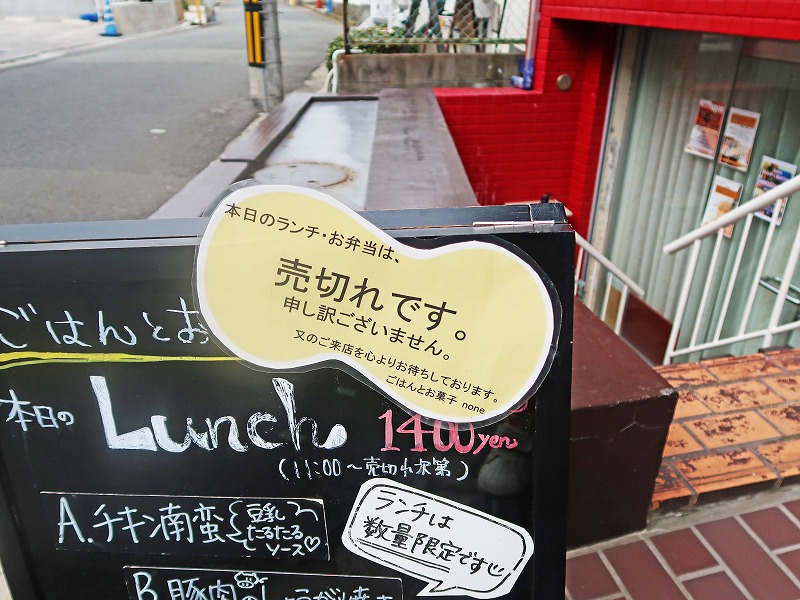 本日のランチ・お弁当は、
売切れです。
申し訳ございません。
又のご来店を心よりお待ちしております。
ごはんとお菓子 none
ごはんとお
本日の Lunch 1400yen
(11:00～売切れ次第)
A.チキン南蛮
豆乳
たるたる
ソース♡
ランチは
数量限定です
B.豚肉のしょうが焼き